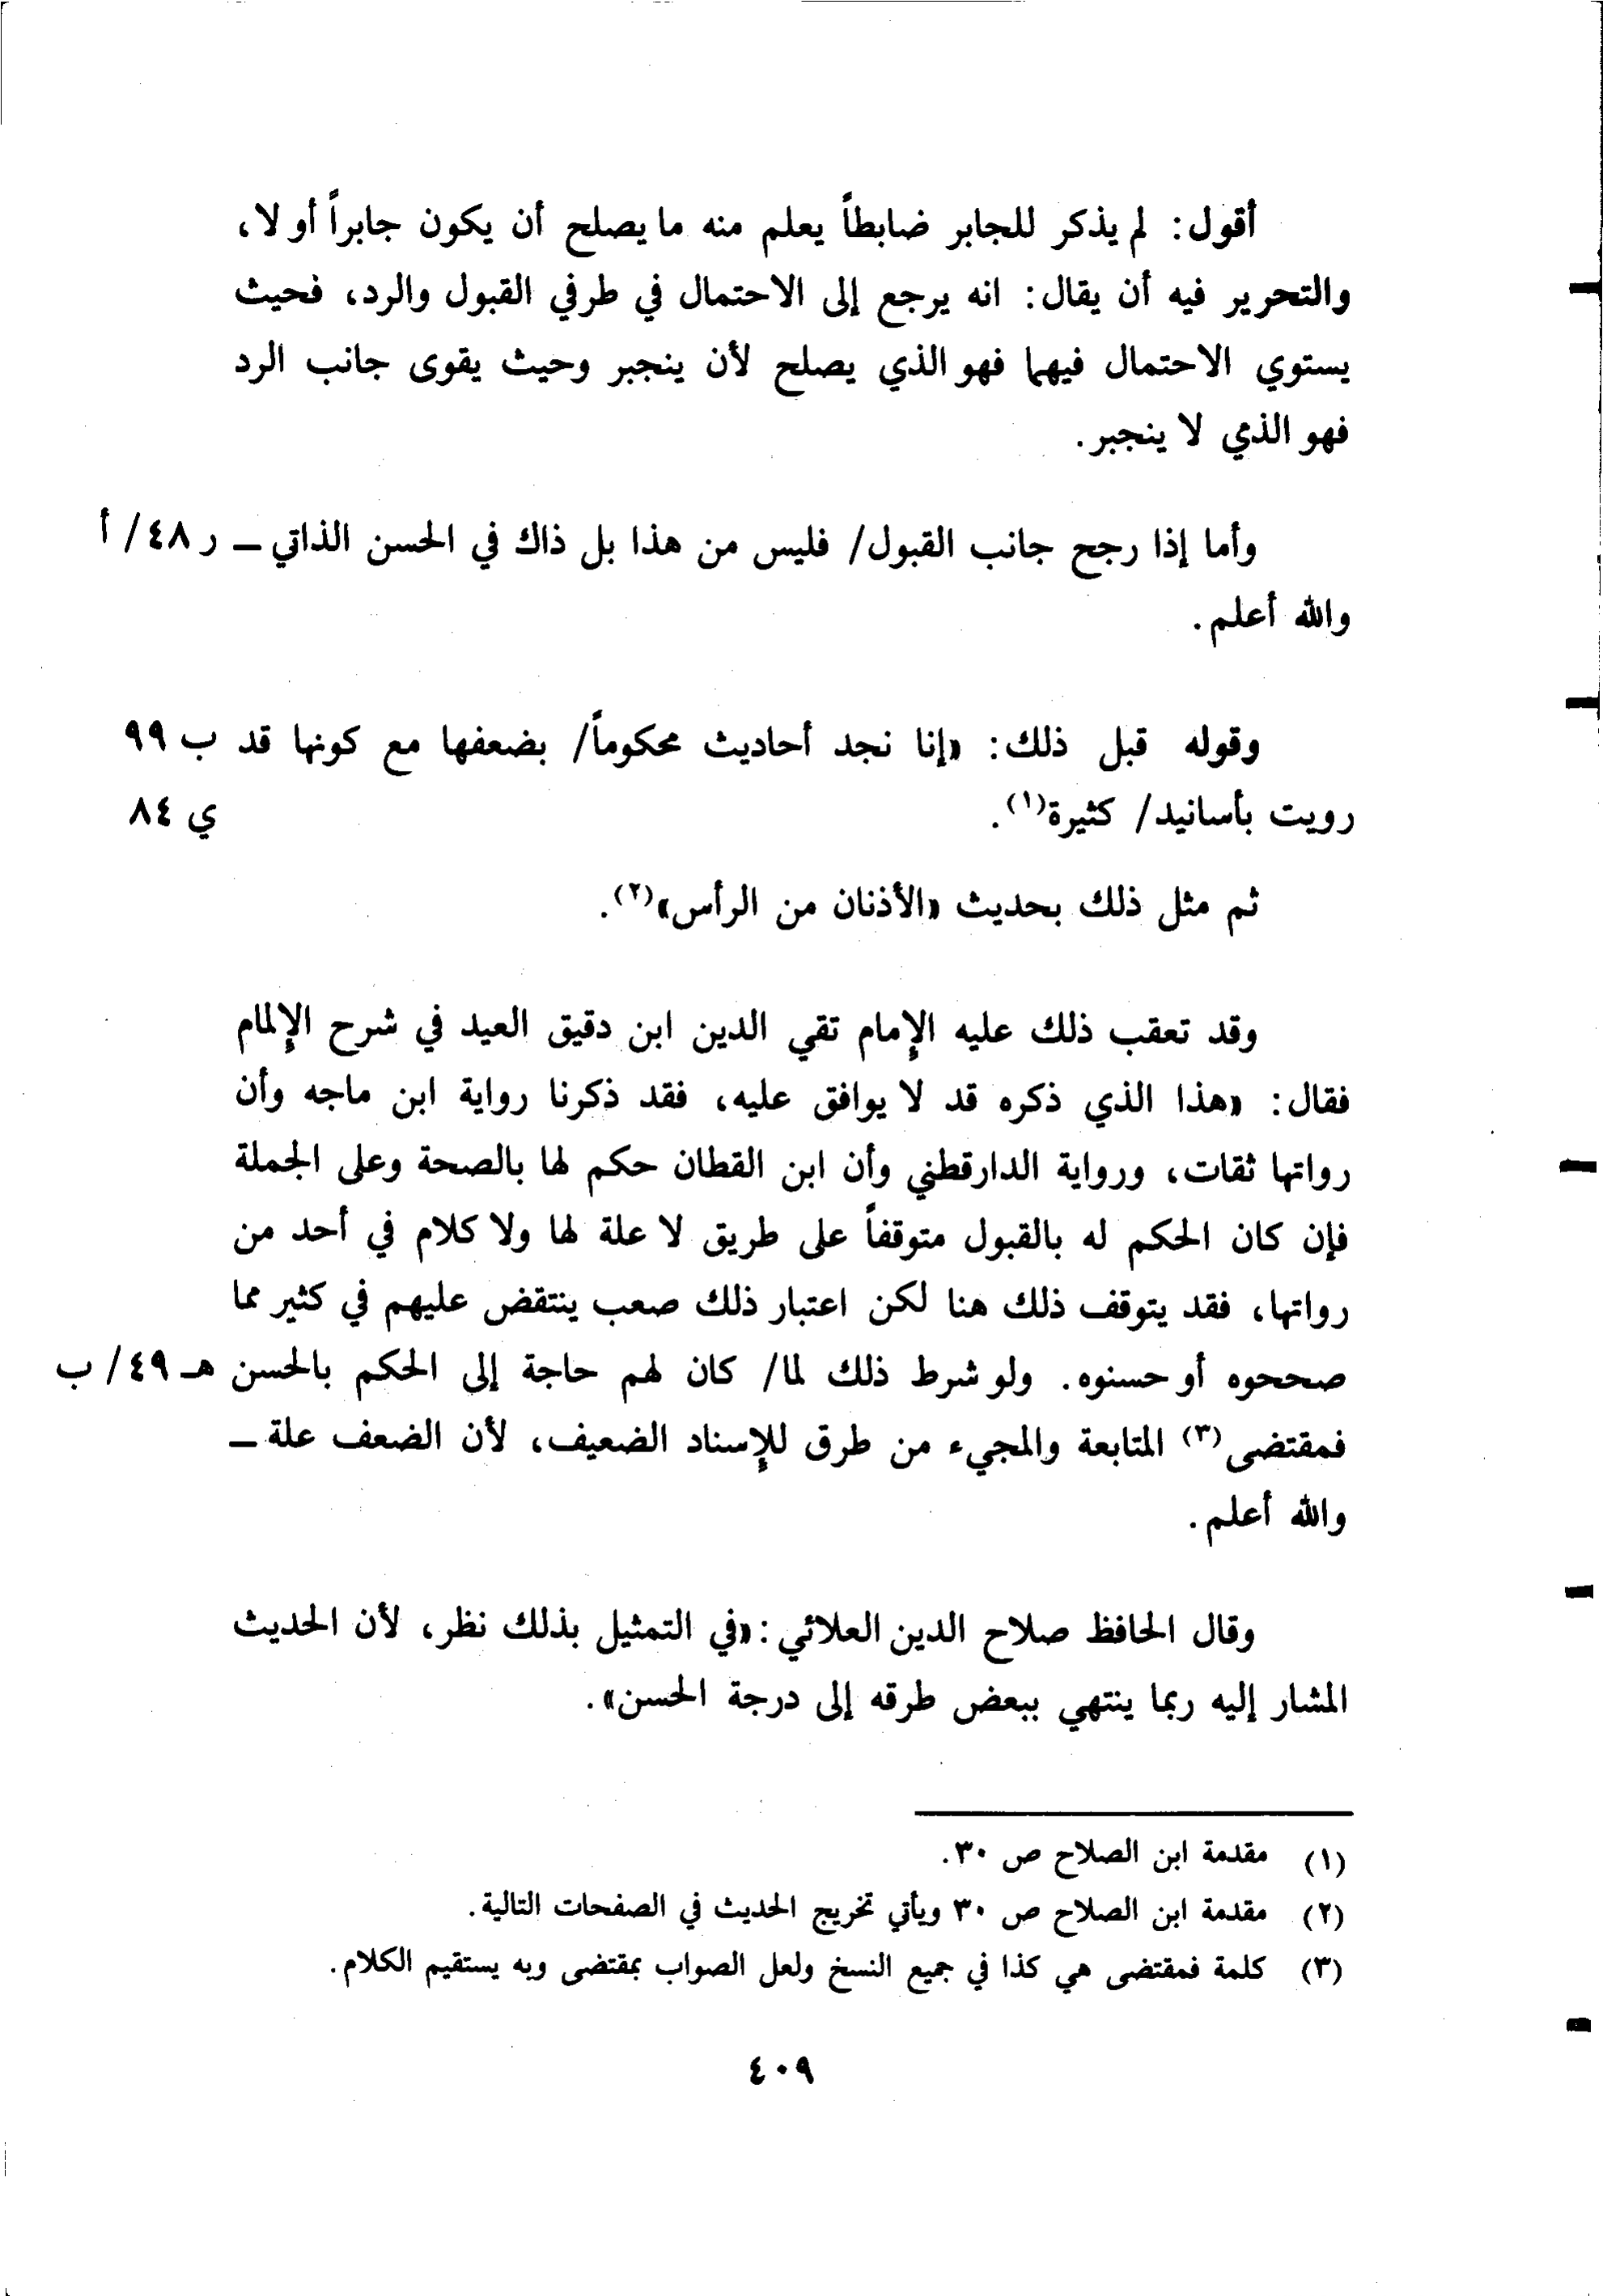 أقول: لم يذكر للجابر ضابطاً يعلم منه ما يصلح أن يكون جابراً أو لا،
والتحرير فيه أن يقال: انه يرجع إلى الاحتمال في طرفي القبول والرد، فحيث
يستوي الاحتمال فيهما فهو الذي يصلح لأن ينجبر وحيث يقوى جانب الرد
فهو الذي لا ينجبر.
وأما إذا رجح جانب القبول/ فليس من هذا بل ذاك في الحسن الذاتي ـ ر ٤٨/ أ
والله أعلم.
وقوله قبل ذلك: «إنا نجد أحاديث محكوماً/ بضعفها مع كونها قد ب ٩٩
رويت بأسانيد/ كثيرة(١). ي ٨٤
ثم مثل ذلك بحديث «الأذنان من الرأس»(٢).
وقد تعقب ذلك عليه الإمام تقي الدين ابن دقيق العيد في شرح الإلمام
فقال: «هذا الذي ذكره قد لا يوافق عليه، فقد ذكرنا رواية ابن ماجه وأن
رواتها ثقات، ورواية الدارقطني وأن ابن القطان حكم لها بالصحة وعلى الجملة
فإن كان الحكم له بالقبول متوقفاً على طريق لا علة لها ولا كلام في أحد من
رواتها، فقد يتوقف ذلك هنا لكن اعتبار ذلك صعب ينتقض عليهم في كثير مما
صححوه أو حسنوه. ولو شرط ذلك لما/ كان لهم حاجة إلى الحكم بالحسن هـ ٤٩/ ب
فمقتضى(٣) المتابعة والمجيء من طرق للإسناد الضعيف، لأن الضعف علة ـ
والله أعلم.
وقال الحافظ صلاح الدين العلائي: «في التمثيل بذلك نظر، لأن الحديث
المشار إليه ربما ينتهي ببعض طرقه إلى درجة الحسن».
(١) مقدمة ابن الصلاح ص ٣٠.
(٢) مقدمة ابن الصلاح ص ٣٠ ويأتي تخريج الحديث في الصفحات التالية.
(٣) كلمة فمقتضى هي كذا في جميع النسخ ولعل الصواب بمقتضى وبه يستقيم الكلام.
٤٠٩